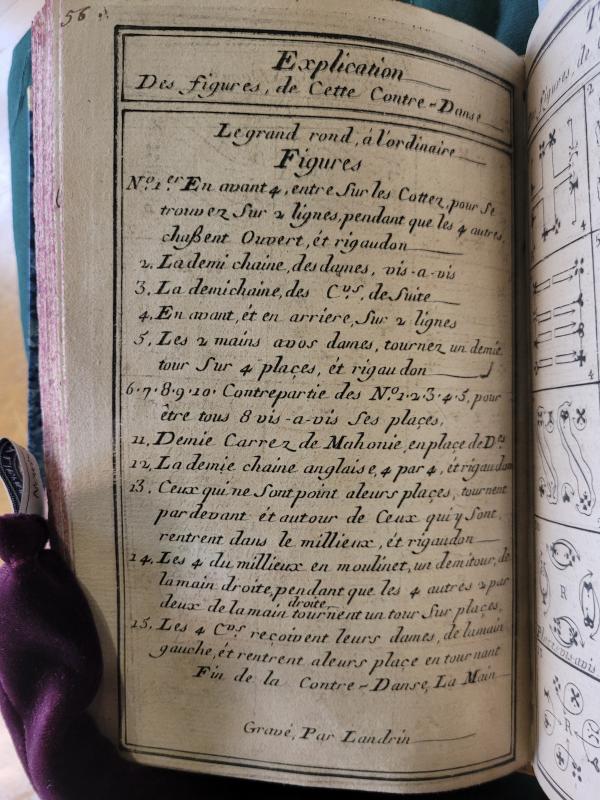 56
Explication
Des figures, de Cette Contre-Danse
Le grand rond, à l'ordinaire
Figures
No. 1.er En avant 4, entre Sur les Cottez, pour se
trouvez Sur 2 lignes, pendant que les 4 autres,
chaßent Ouvert, ét rigaudon
2. La demi chaine, des dames, vis-a-vis
3. La demi chaine, des C.vrs, de Suite
4. En avant, ét en arriere, Sur 2 lignes
5. Les 2 mains avos dames, tournez un demie
tour Sur 4 places, ét rigaudon
6.7.8.9.10. Contrepartie des No. 1.2.3.4.5, pour
être tous 8 vis-a-vis Ses places,
11, Demie Carrez de Mahonie, en place de D.es
12, La demie chaine anglaise, 4 par 4, ét rigaudon
13. Ceux qui ne Sont point aleurs places, tournent
par devant ét autour de Ceux qui y Sont,
rentrent dans le millieux, ét rigaudon
14. Les 4 du millieux en moulinet, un demi tour, de
la main droite, pendant que les 4 autres 2 par
deux de la main droite tournent un tour Sur places,
15. Les 4 C.vrs reçoivent leurs dames, de la main
gauche, ét rentrent aleurs place en tournant
Fin de la Contre-Danse, La Main
Gravé, Par Landrin